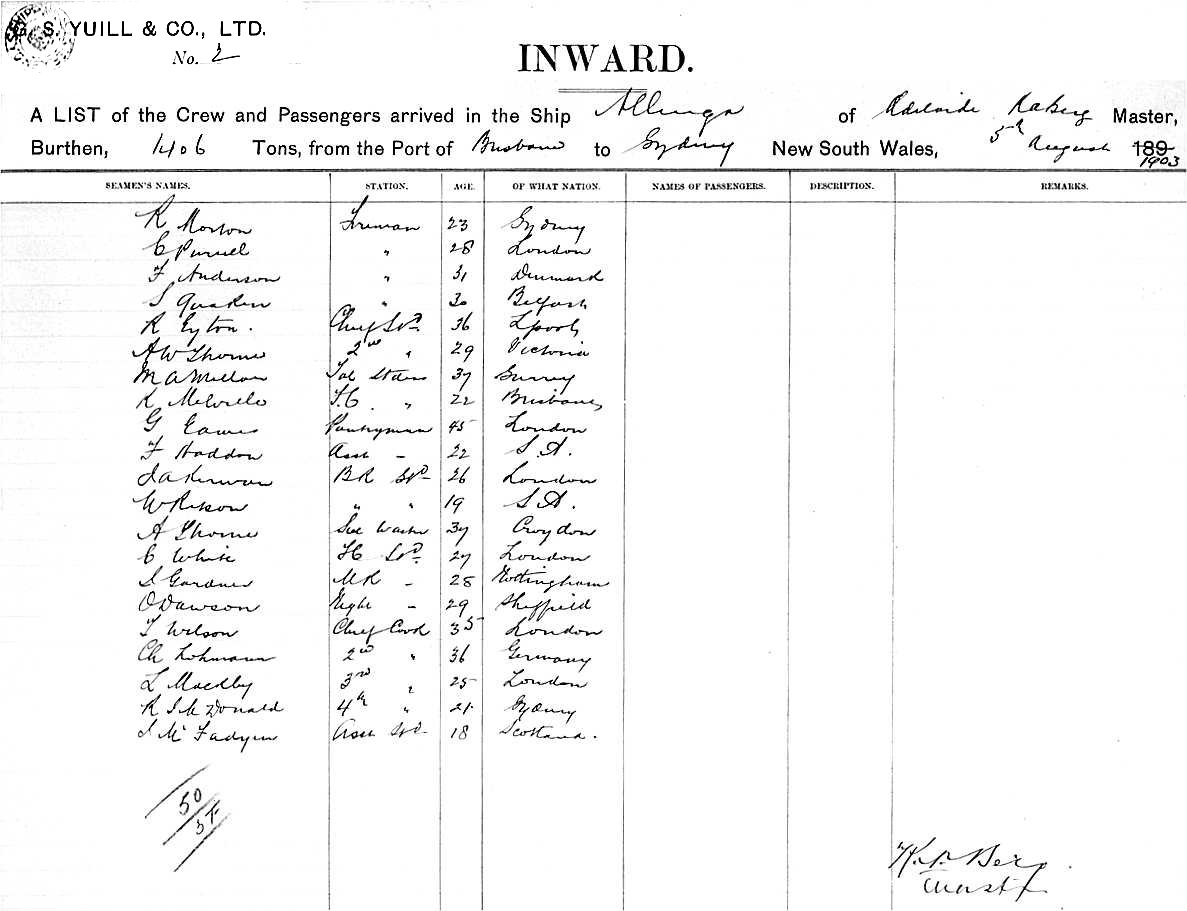 S. YUILL & CO., LTD.
No. 2
INWARD.
A LIST of the Crew and Passengers arrived in the Ship Allinga of Adelaide Master,
Burthen, 1406 Tons, from the Port of Brisbane to Sydney New South Wales, 5th August 189 1903
SEAMEN'S NAMES. STATION. AGE. OF WHAT NATION. NAMES OF PASSENGERS. DESCRIPTION. REMARKS.
R Morton Fireman 23 Sydney
C Purcell " 28 London
F Anderson " 31 Denmark
" 30 Belfast
R Eyton. Chief Std. 36 Lpool
A W Thorne 2nd " 29 Victoria
37 Surrey
R Melville " 22 Brisbane
G Eames Pantryman 45 London
F Haddon Asst - 22 S.A.
J A Kerwan BR Std 26 London
" " 19 S.A.
A Thorne 37 Croydon
C White Std. 27 London
S Gardner MR - 28 Nottingham
O Dawson - 29 Sheffield
T Wilson Chief Cook 35 London
Ch Lohmann 2nd " 36 Germany
L 3rd " 25 London
R J McDonald 4th " 21 Sydney
J McFadyen Asst Std 18 Scotland.
50
Berg
Master